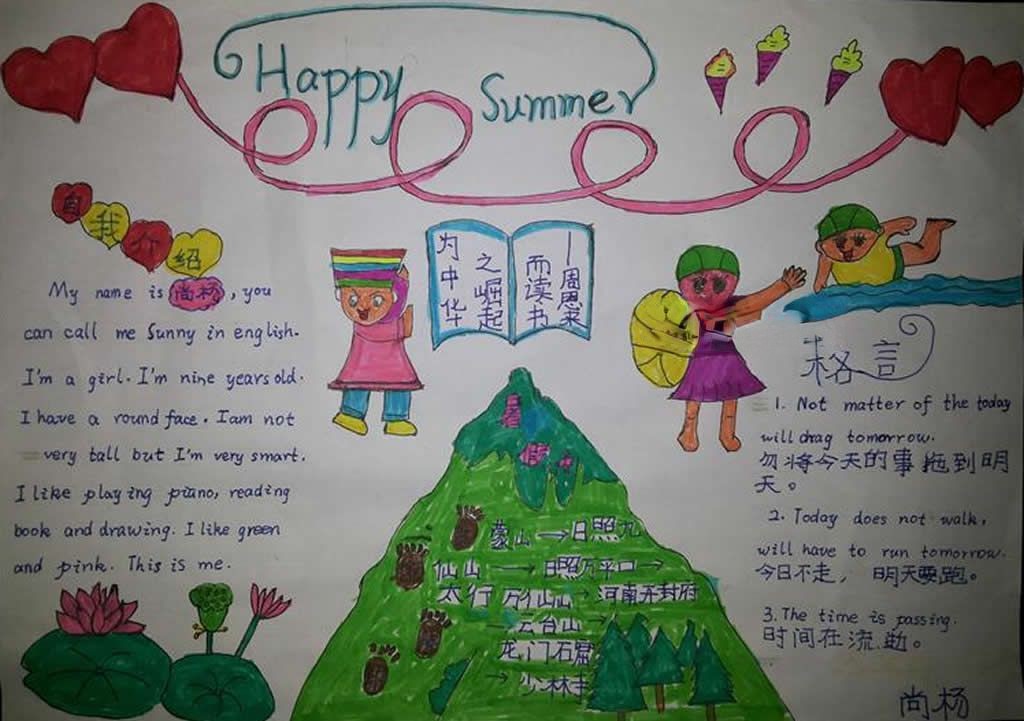 Happy Summer
自我介绍
My name is 尚杨, you
can call me Sunny in english.
I'm a girl. I'm nine years old.
I have a round face. I am not
very tall but I'm very smart.
I like playing piano, reading
book and drawing. I like green
and pink. This is me.
为中华
之崛起
而读书
—周恩来
暑
假
蒙山→日照九
仙山→日照万平口→
太行万仙山→河南开封府
→云台山→
龙门石窟
→少林寺
格言
1. Not matter of the today
will drag tomorrow.
勿将今天的事拖到明
天。
2. Today does not walk,
will have to run tomorrow.
今日不走，明天要跑。
3. The time is passing.
时间在流逝。
尚杨